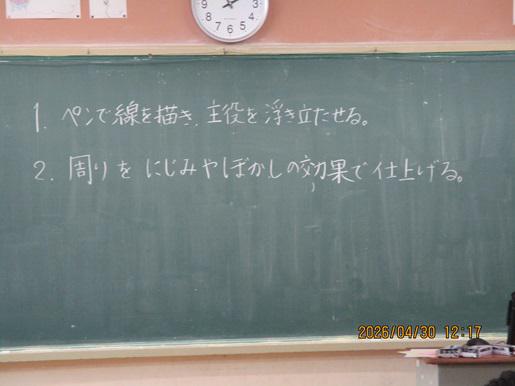 1. ペンで線を描き、主役を浮き立たせる。
2. 周りをにじみやぼかしの効果で仕上げる。
2026/04/30 12:17